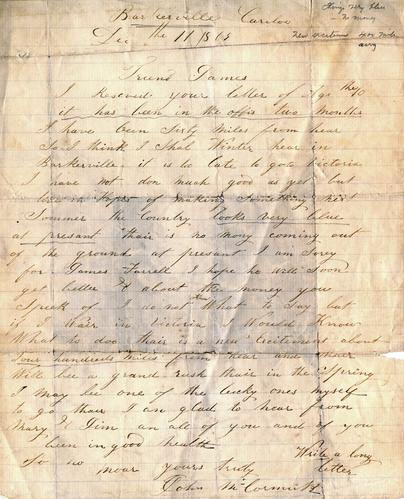 Things very blue
- no money
new excitement 400 miles
away
Barkerville Cariboo
Dec the 11 1865
Friend James
I Rescved your letter of Agst the 10
it has been in the offis two months
I have been Sixty Miles from hear
So I think I Shal Winter hear in
Barkerville it is to late to go to Victoria
I have not don much good as yet but
live in hopes of making Something next
Sommer the Country looks very blue
at presant thair is no mony coming out
of the ground at presant I am Sorey
for James Farrell I hope he will Soon
get better & about the money you
Speak of I do not What to Say but
if I Wair in Victoria I Would Know
What to doo thair is a new Excitement about
four hundreds Miles from hear and thair
Will bee a grand rush thair in the Spring
I may bee one of the lucky ones myself
to go thair I am glad to hear from
Mary & Jim an all of you and of you
been in good health
So no moar yours truly
Write a long
letter
John McCormick